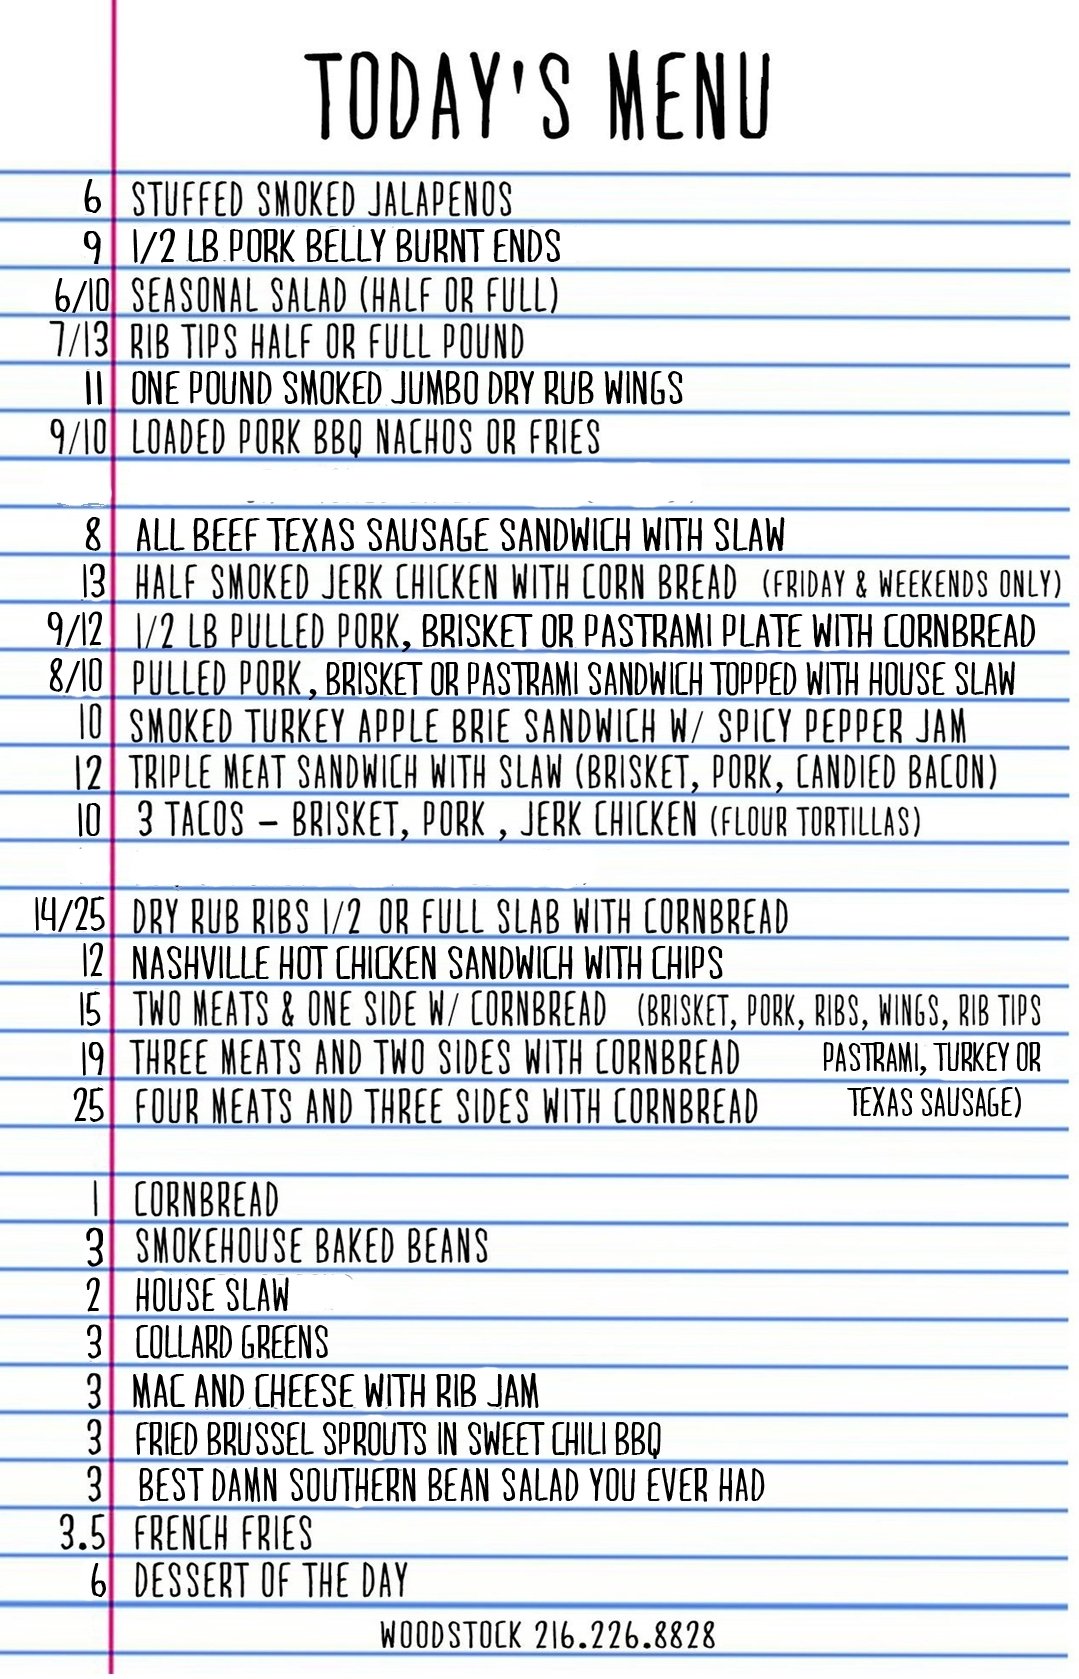 TODAY'S MENU
6 STUFFED SMOKED JALAPENOS
9 1/2 LB PORK BELLY BURNT ENDS
6/10 SEASONAL SALAD (HALF OR FULL)
7/13 RIB TIPS HALF OR FULL POUND
11 ONE POUND SMOKED JUMBO DRY RUB WINGS
9/10 LOADED PORK BBQ NACHOS OR FRIES
8 ALL BEEF TEXAS SAUSAGE SANDWICH WITH SLAW
13 HALF SMOKED JERK CHICKEN WITH CORN BREAD (FRIDAY & WEEKENDS ONLY)
9/12 1/2 LB PULLED PORK, BRISKET OR PASTRAMI PLATE WITH CORNBREAD
8/10 PULLED PORK, BRISKET OR PASTRAMI SANDWICH TOPPED WITH HOUSE SLAW
10 SMOKED TURKEY APPLE BRIE SANDWICH W/ SPICY PEPPER JAM
12 TRIPLE MEAT SANDWICH WITH SLAW (BRISKET, PORK, CANDIED BACON)
10 3 TACOS – BRISKET, PORK , JERK CHICKEN (FLOUR TORTILLAS)
14/25 DRY RUB RIBS 1/2 OR FULL SLAB WITH CORNBREAD
12 NASHVILLE HOT CHICKEN SANDWICH WITH CHIPS
15 TWO MEATS & ONE SIDE W/ CORNBREAD (BRISKET, PORK, RIBS, WINGS, RIB TIPS
19 THREE MEATS AND TWO SIDES WITH CORNBREAD PASTRAMI, TURKEY OR
25 FOUR MEATS AND THREE SIDES WITH CORNBREAD TEXAS SAUSAGE)
1 CORNBREAD
3 SMOKEHOUSE BAKED BEANS
2 HOUSE SLAW
3 COLLARD GREENS
3 MAC AND CHEESE WITH RIB JAM
3 FRIED BRUSSEL SPROUTS IN SWEET CHILI BBQ
3 BEST DAMN SOUTHERN BEAN SALAD YOU EVER HAD
3.5 FRENCH FRIES
6 DESSERT OF THE DAY
WOODSTOCK 216.226.8828